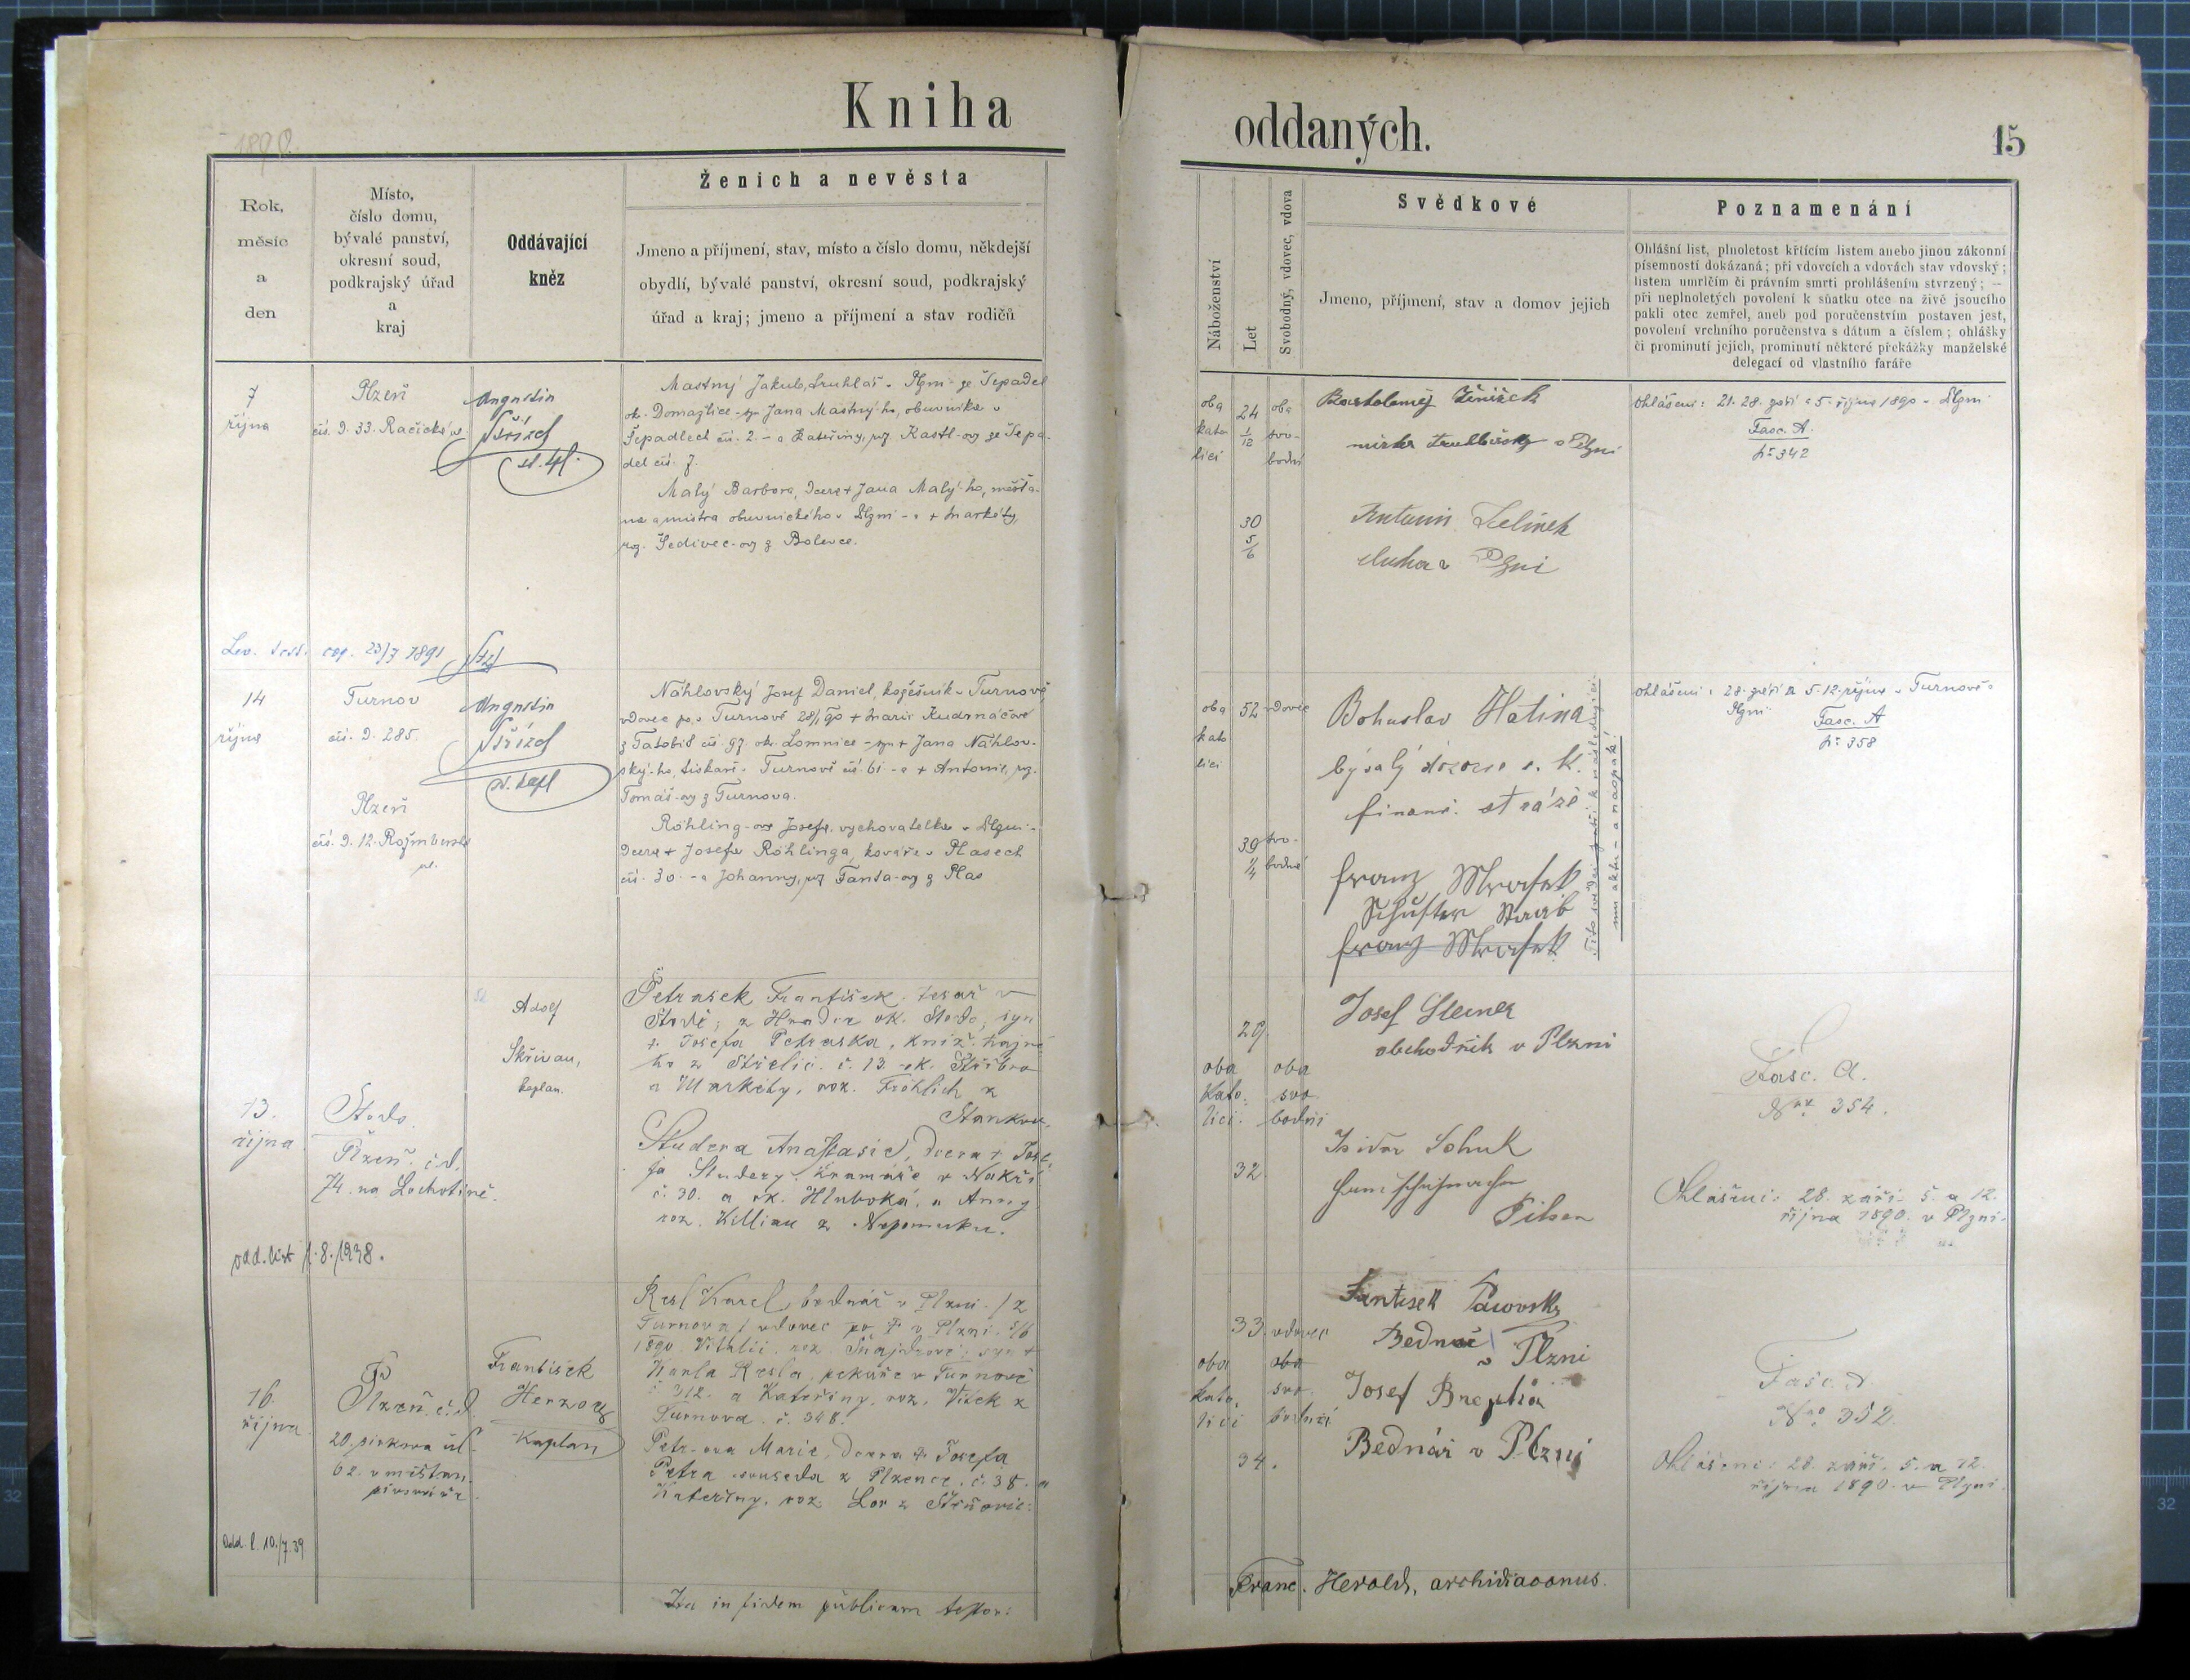 1890.
Kniha
Rok,
měsíc
a
den
Místo,
číslo domu,
bývalé panství,
okresní soud,
podkrajský úřad
a
kraj
Oddávající
kněz
Ženich a nevěsta
Jmeno a příjmení, stav, místo a číslo domu, někdejší
obydlí, bývalé panství, okresní soud, podkrajský
úřad a kraj; jmeno a příjmení a stav rodičů
7
října
Plzeň
čís. d. 33. Račická ul.
Augustin
Střízel
st. kpl.
Mastný Jakub, truhlář v Plzni - ze Čepadel
ok. Domažlice - syn Jana Mastný-ho, obuvníka v
Čepadlech čís. 2. - a Kateřiny, roz. Kastl-ovy ze Čepa-
del čís. 7.
Malý Barbora, dcera + Jana Malý-ho, měšťa-
na a mistra obuvnického v Plzni - a + Markéty,
roz. Šedivec-ovy z Bolevce.
cop. 23/7 1891
14
října
Turnov
čís. d. 285.
Plzeň
čís. d. 12. Rožmbersk
ul.
Augustin
Střízel
st. kapl
Náhlovský Josef Daniel, kožešník v Turnově,
vdovec po v Turnově 28/1 90 + Marii Kudrnáčové
z Tatobit čís. 97. okr. Lomnice - syn + Jana Náhlov-
ský-ho, tiskaři v Turnově čís. 61 - a + Antonie, roz.
Tomáš-ovy z Turnova.
Röhling-ova Josefa, vychovatelka v Plzni -
dcera + Josefa Röhlinga, kováře v Plasech
čís. 30. - a Johanny, roz Fanta-ovy z Plas
13.
října
Stodo.
Plzeň č. d.
74. na Lochotíně.
Adolf
Skřivan,
kaplan.
Petrasek František. tesař v
Stodě; z Hradce ok. Stodo, syn
+ Josefa Petraska, kníž. hajné-
ho z Střelic. č. 13. ok. Stříbro
a Markéty, roz. Fröhlich z
Stankova.
Studera Anastasie, dcera + Jose-
fa Studery, kramáře v Nákři
č. 30. a ok. Hluboká, a Anny
roz. Killian z Nepomuku.
odd. list 1.8.1938.
16.
října
Plzeň č. d.
20.
62. v měšťan.
František
Herzog
Kaplan
Resl Karel, bednář v Plzni /z
Turnova/ vdovec po + v Plzni 5/6
1890
Karla Resla, pekaře v Turnově
č 312. a Kateřiny, roz. Vítek z
Turnova. č. 348.
Petr-ova Marie, dcera + Josefa
Petra souseda z Plzence. č. 38. a
Kateřiny, roz. Lov z Štěnovic.
Odd. l. 10./7.39
Ita in fidem publicam testor:
oddaných.
15
Náboženství
Let
Svobodný, vdovec, vdova
Svědkové
Jmeno, příjmení, stav a domov jejich
Poznamenání
Ohlášní list, plnoletost křtícím listem anebo jinou zákonní
písemností dokázaná; při vdovcích a vdovách stav vdovský;
listem umrlčím či právním smrti prohlášením stvrzený; —
při neplnoletých povolení k sňatku otce na živě jsoucího
pakli otec zemřel, aneb pod poručenstvím postaven jest,
povolení vrchního poručenstva s dátum a číslem; ohlášky
či prominutí jejich, prominutí některé překážky manželské
delegací od vlastního faráře
oba
kato-
lici
24
1/12
oba
svo-
bodni
30
5/6
Bartoloměj
mistr truhlářský v Plzni
Antonín Jelínek
sluha v Plzni
Ohlášeni: 21. 28. září a 5. října 1890 v Plzni
Fasc. A.
№ 342
oba
kato
lici
52
vdovec
39
1/4
svo-
bodná
Bohuslav Hatina
bývalý dozorce c. k.
finanč. stráže
Franz Mraset
Schuster Staab
Franz Mraset
Tito svědci patří k následující-
mu aktu - a naopak!
Ohlášeni: 28. září a 5. 12. října v Turnově a
Plzni.
Fasc. A
№ 358
oba
kato-
lici.
29.
oba
svo
bodni
32.
Josef Steiner
obchodník v Plzni
Isidor Schuk
Pilsen
Fasc. A.
Nro. 354.
Ohlášeni: 28. září. 5. a 12.
října 1890. v Plzni.
33.
vdovec
oba
kato.
lici
oba
svo.
bodni
34.
Bednář
v Plzni
Josef
Bednář v Plzni
Fasc. A
Nro. 352.
Ohlášeni: 28. září. 5. a 12.
října 1890. v Plzni.
Franc. Herold, archidiaconus.